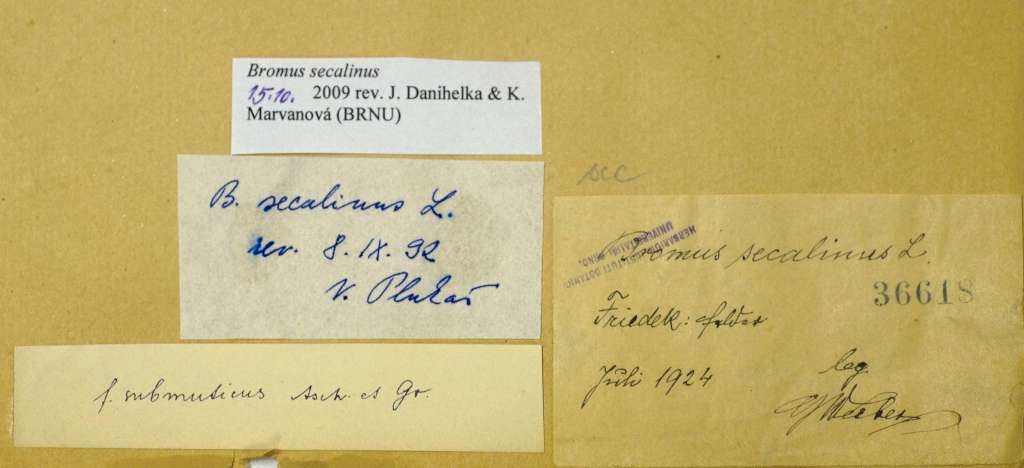 Bromus secalinus
15.10. 2009 rev. J. Danihelka & K.
Marvanová (BRNU)
B. secalinus L.
rev. 8. IX. 92
V. Plukař
f. submuticus Asch. et Gr.
sec
HERBARIUM INSTITUTI BOTANICI
UNIVERSITATIS BRNO.
Bromus secalinus L.
36618
Friedek: felder
Juli 1924
leg.
Weeber